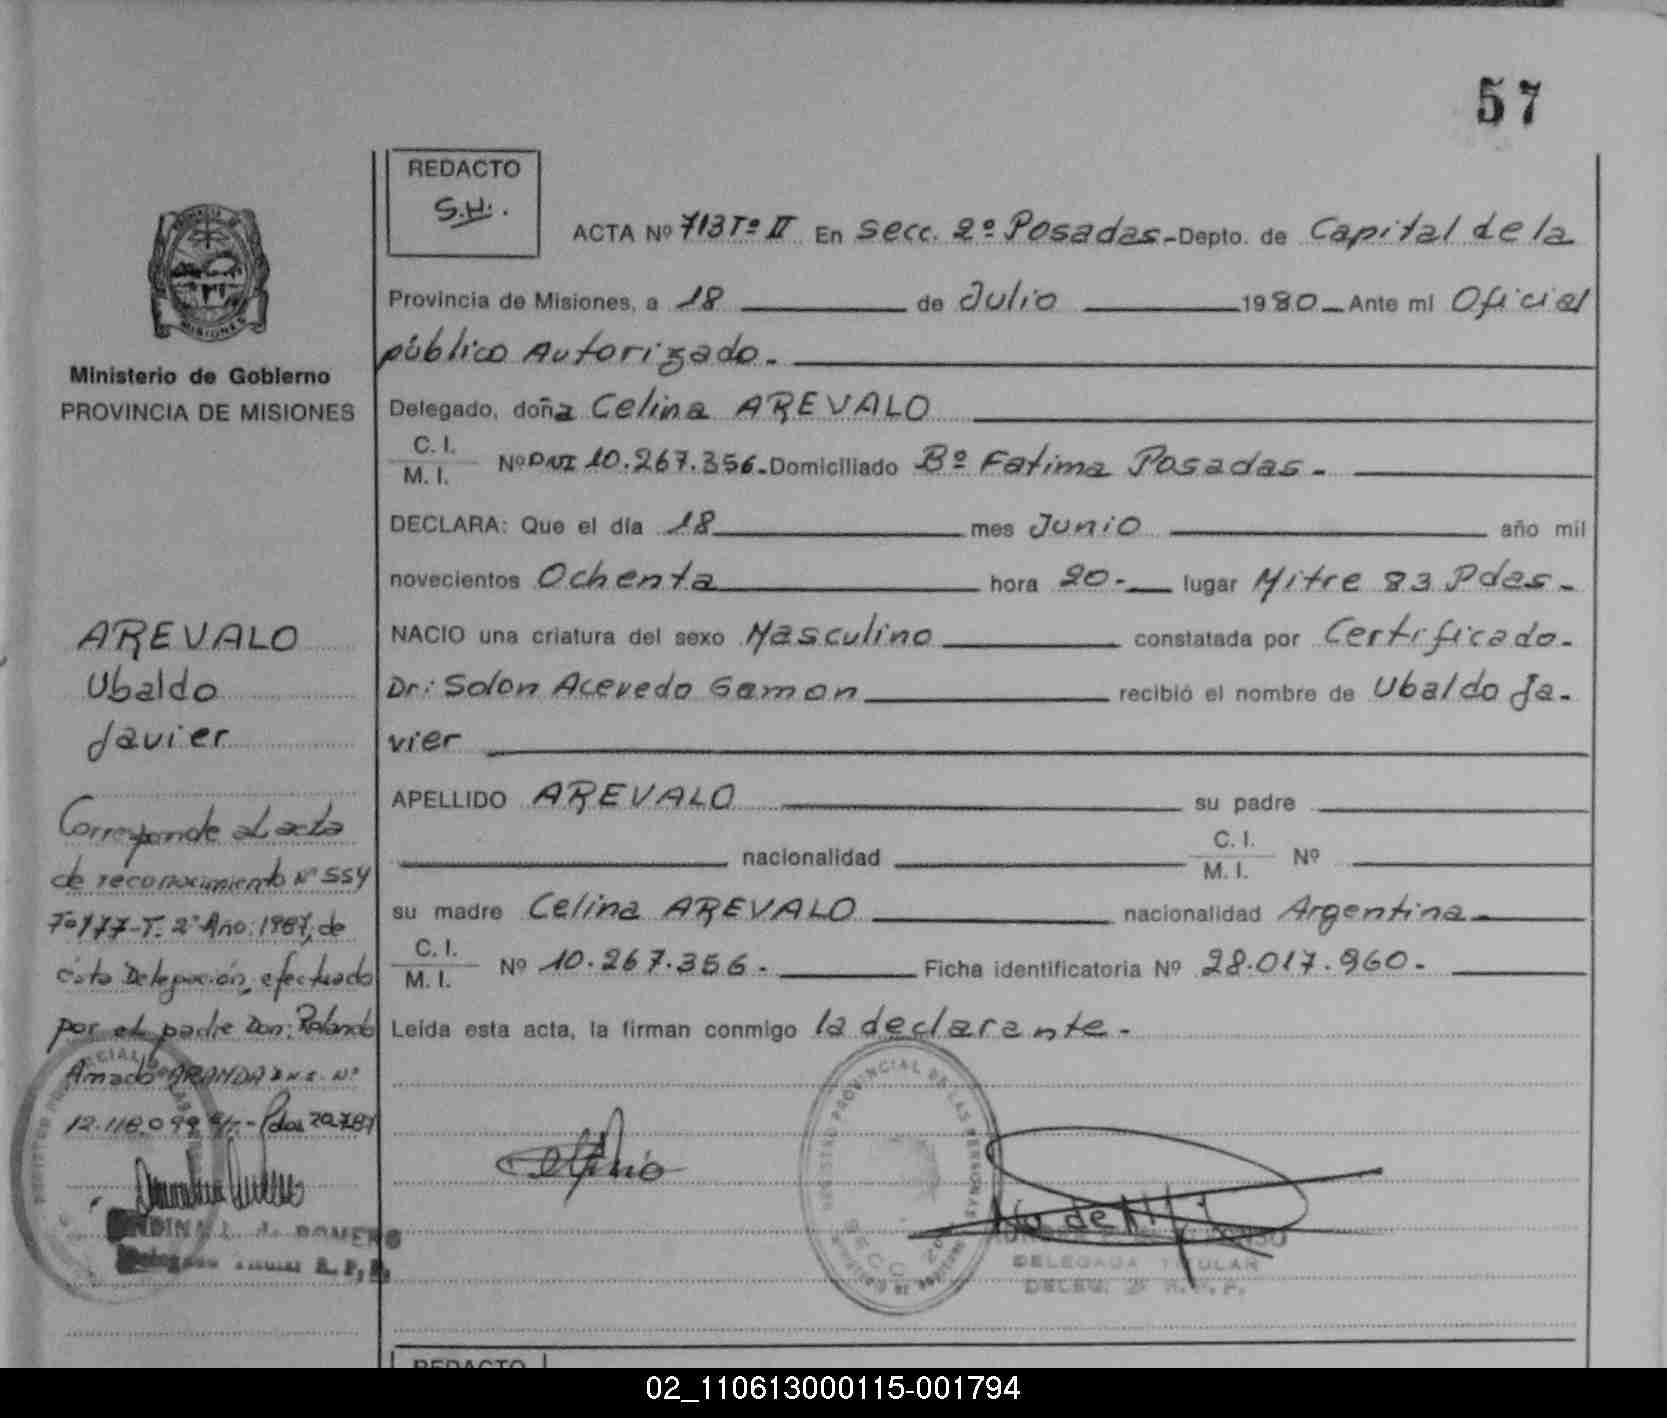 57
REDACTO
S.H.
ACTA Nº 713 Tº II En secc. 2º Posadas.- Depto. de Capital de la
Provincia de Misiones, a 18 de Julio 1980 Ante mí Oficial
público Autorizado.-
Delegado, doña Celina AREVALO
C. I.
M. I.
Nº DNI 10.267.356.- Domiciliado Bº Fatima Posadas.-
DECLARA: Que el día 18 mes Junio año mil
novecientos Ochenta hora 20.- lugar Mitre 83 Pdas.-
NACIO una criatura del sexo Masculino constatada por Certificado.-
Dr: Solon Acevedo Gamon recibió el nombre de Ubaldo Ja-
vier
APELLIDO AREVALO su padre
nacionalidad C. I.
M. I. Nº
su madre Celina AREVALO nacionalidad Argentina
C. I.
M. I.
Nº 10.267.356.- Ficha identificatoria Nº 28.017.960.-
Leída esta acta, la firman conmigo la declarante.-
MISIONES
Ministerio de Gobierno
PROVINCIA DE MISIONES
AREVALO
Ubaldo
Javier
Corresponde al acta
de reconocimiento Nº 554
Fº 177-T. 2º Año: 1987, de
ésta Delegación, efectuado
por el padre Don: Rolando
Amado ARANDA D.N.I. Nº
12.118.099 Pdas 20.7.87
REGISTRO PROVINCIAL DE LAS PERSONAS
SECC. 2º
DELEGADA TITULAR
DELEG. 2º R. P. P.
REDACTO
02_110613000115-001794